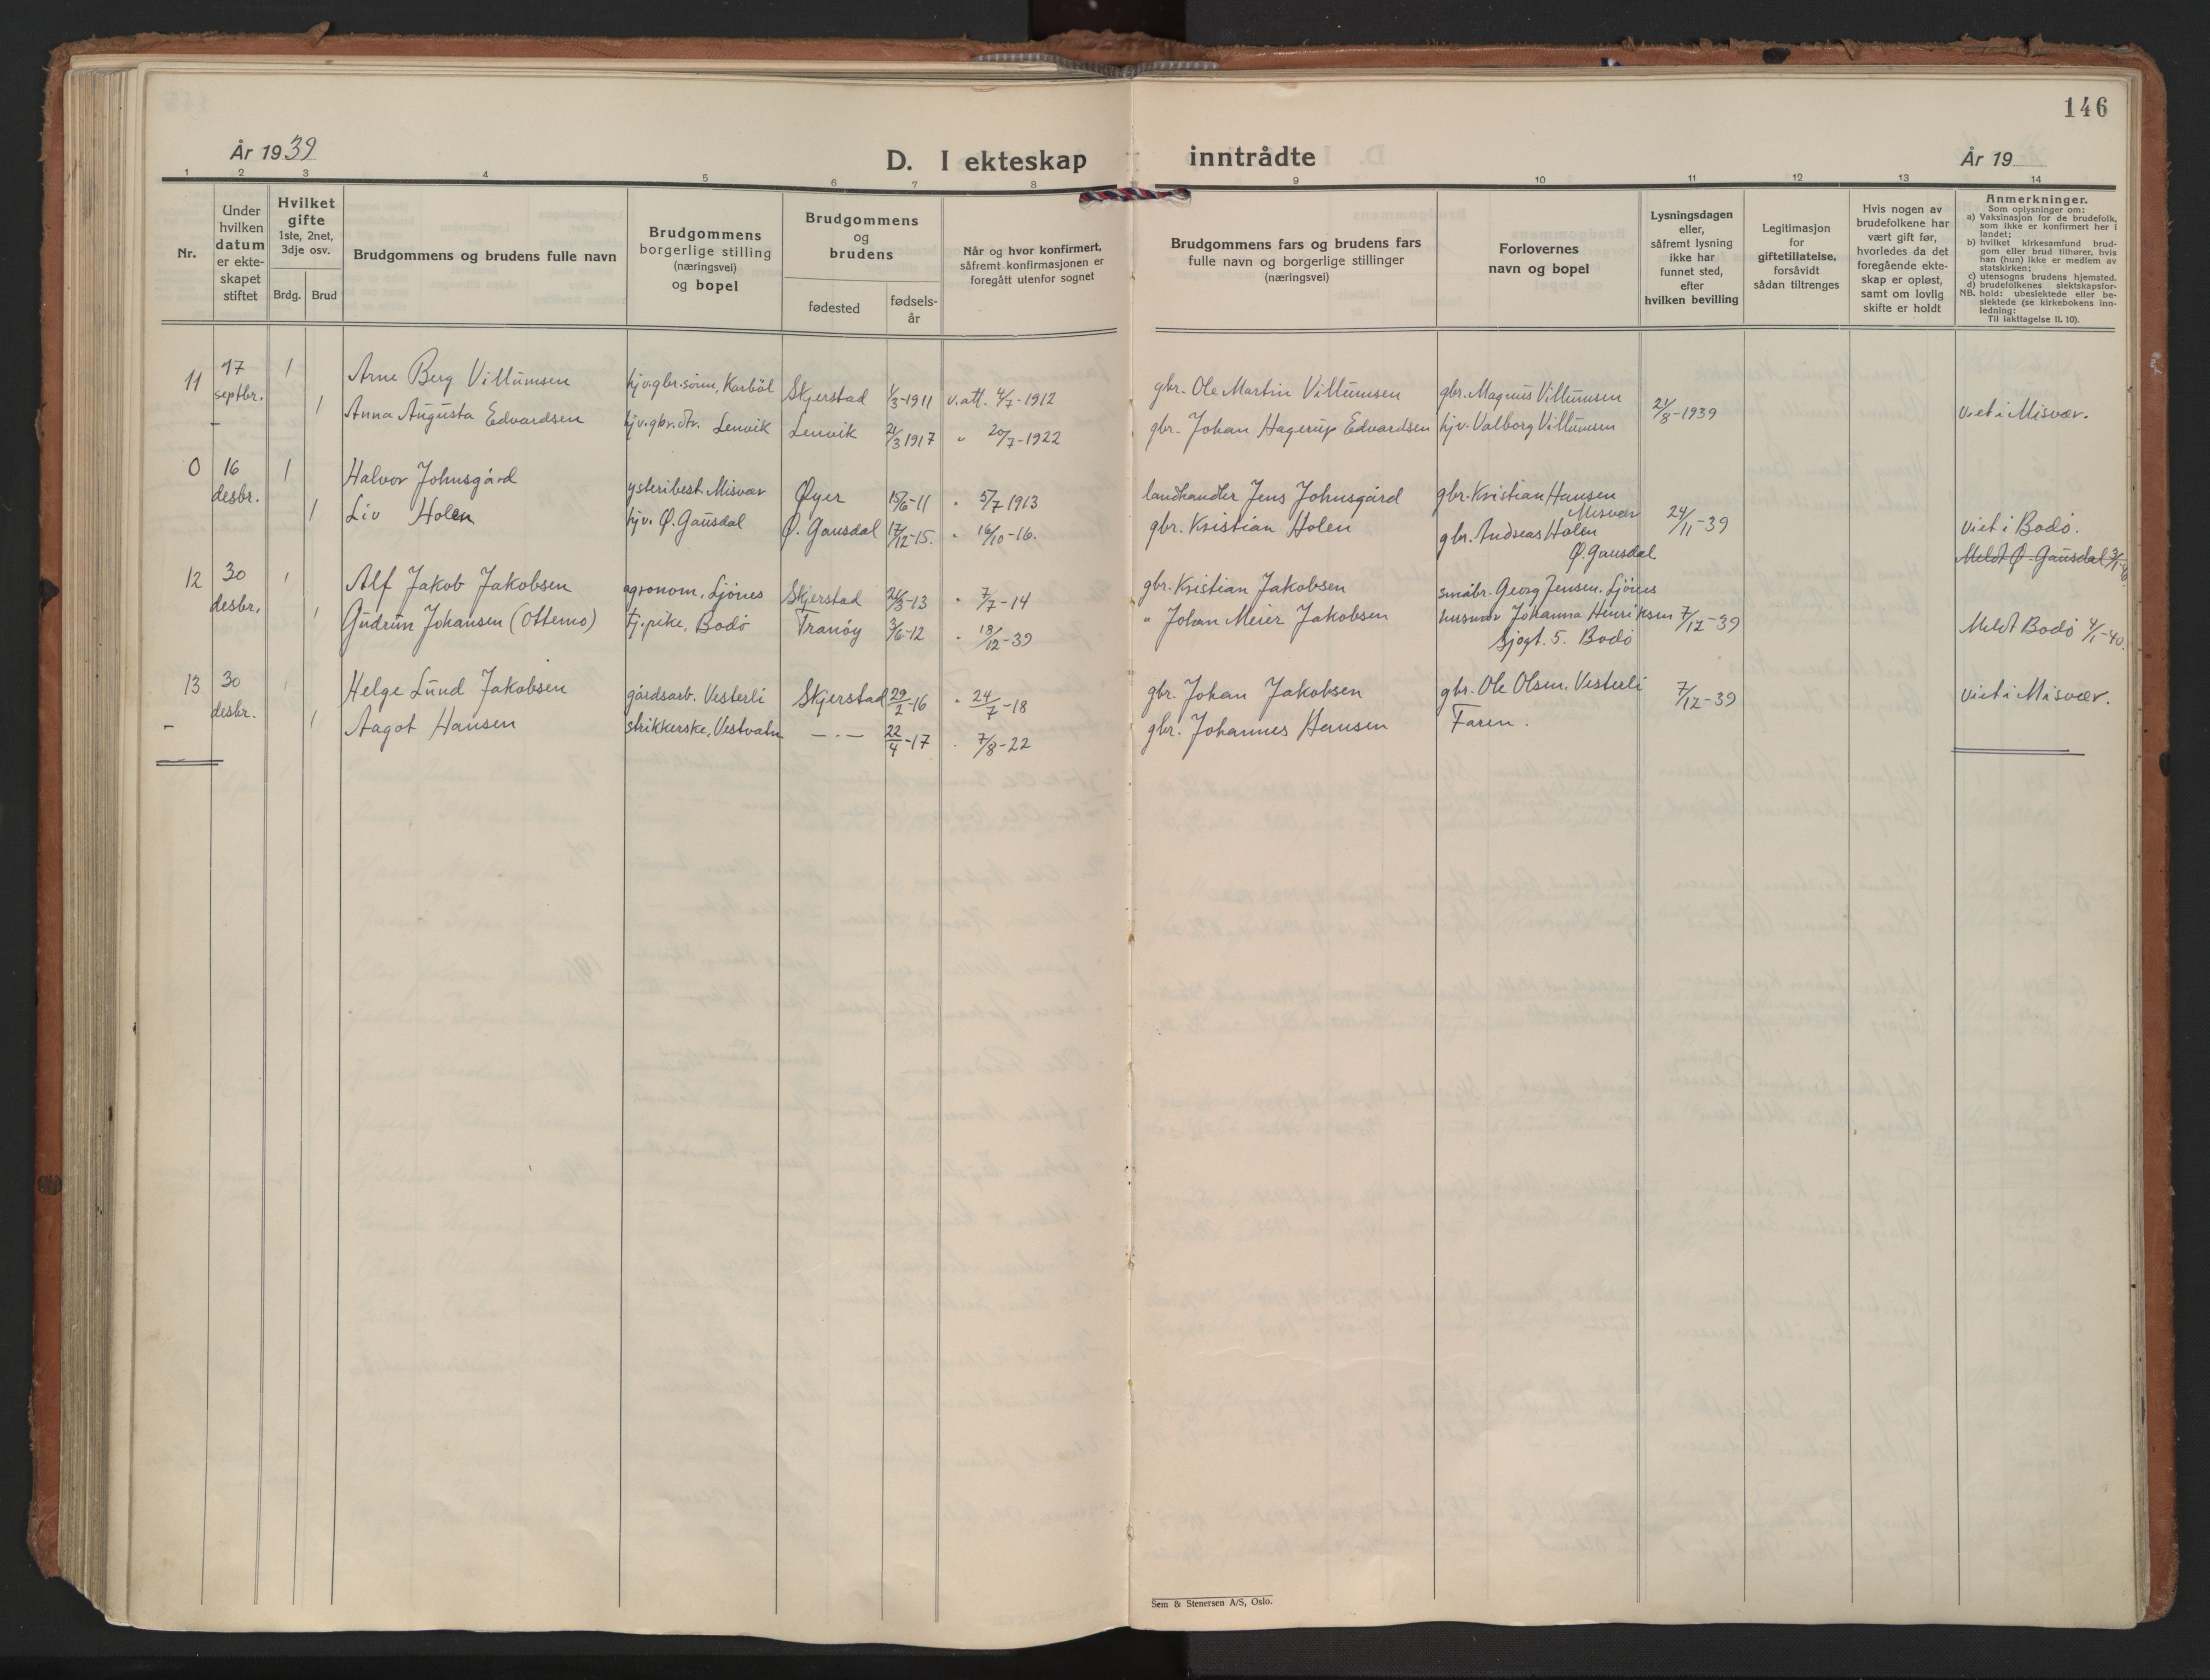 146
År 1939
D. I ekteskap inntrådte
År 19
1 2 3 4 5 6 7 8 9 10 11 12 13 14
Nr.
Under
hvilken
datum
er ekte-
skapet
stiftet
Hvilket
gifte
1ste, 2net,
3dje osv.
Brdg. Brud
Brudgommens og brudens fulle navn
Brudgommens
borgerlige stilling
(næringsvei)
og bopel
Brudgommens
og
brudens
fødested
fødsels-
år
Når og hvor konfirmert,
såfremt konfirmasjonen er
foregått utenfor sognet
Brudgommens fars og brudens fars
fulle navn og borgerlige stillinger
(næringsvei)
Forlovernes
navn og bopel
Lysningsdagen
eller,
såfremt lysning
ikke har
funnet sted,
efter
hvilken bevilling
Legitimasjon
for
giftetillatelse,
forsåvidt
sådan tiltrenges
Hvis nogen av
brudefolkene har
vært gift før,
hvorledes da det
foregående ekte-
skap er opløst,
samt om lovlig
skifte er holdt
Anmerkninger.
Som oplysninger om:
a) Vaksinasjon for de brudefolk,
som ikke er konfirmert her i
landet;
b) hvilket kirkesamfund brud-
gom eller brud tilhører, hvis
han (hun) ikke er medlem av
statskirken;
c) utensogns brudens hjemsted.
d) brudefolkenes slektskapsfor-
NB. hold: ubeslektede eller be-
slektede (se kirkebokens inn-
ledning:
Til iakttagelse II. 10).
11 17 septbr. 1 Arne Berg Villumsen hjv. gbr. sönn, Karböl Skjerstad 1/3-1911 v. att. 4/7-1912 gbr. Ole Martin Villumsen gbr. Magnus Villumsen 21/8-1939 Viet i Misvær.
- 1 Anna Augusta Edvardsen hjv. gbr. dtr. Lenvik Lenvik 21/3 1917 " 20/7-1922 gbr. Johan Hagerup Edvardsen hjv. Valborg Villumsen
0 16 desbr. 1 Halvor Johnsgård ysteribest. Misvær Øyer 15/6-11 " 5/7 1913 landhandler Jens Johnsgård gbr. Kristian Hansen Misvær 24/11-39 viet i Bodö.
1 Liv Holen hjv. Ø. Gausdal Ø. Gausdal 17/12-15. " 16/10-16. gbr. Kristian Holen gbr. Andreas Holen Ø. Gausdal Meldt Ø. Gausdal
12 30 desbr. 1 Alf Jakob Jakobsen agronom, Ljönes Skjerstad 26/3-13 " 7/7-14 gbr. Kristian Jakobsen småbr. Georg Jensen. Ljönes
1 Gudrun Johansen (Ottemo) tj. pike, Bodö Tranöy 3/6-12 " 18/12-39 " Johan Meier Jakobsen husmor Johanna Henriksen 7/12-39 Sjøgt. 5. Bodö Meldt Bodö 4/1-40.
13 30 desbr. 1 Helge Lund Jakobsen gårdsarb. Vesterli Skjerstad 29/2-16 " 24/7-18 gbr. Johan Jakobsen gbr. Ole Olsen, Vesterli 7/12-39 viet i Misvær.
- 1 Aagot Hansen strikkerske, Vestvatn — " — 22/4-17 " 7/8-22 gbr. Johannes Hansen Faren.
Sem & Stenersen A/S, Oslo.